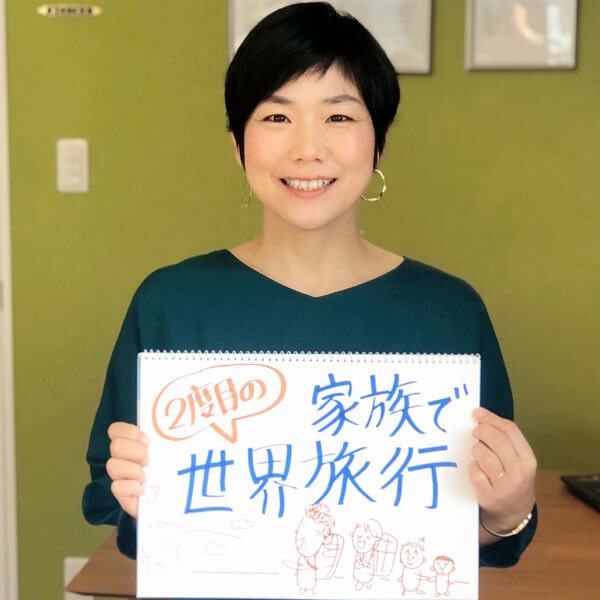 2度目の
家族で
世界旅行